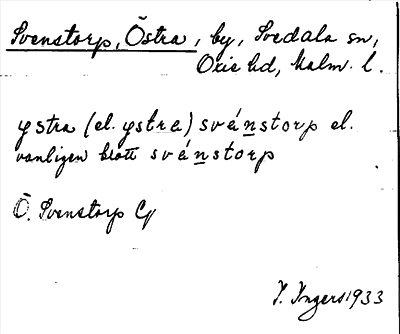 Svenstorp, Östra, by, Svedala sn,
Oxie hd, Malm. l.
ystra (el. ystrə) svánstorp el.
vanligen blott svánstorp
Ö. Svenstorp Cy
I. Ingers 1933